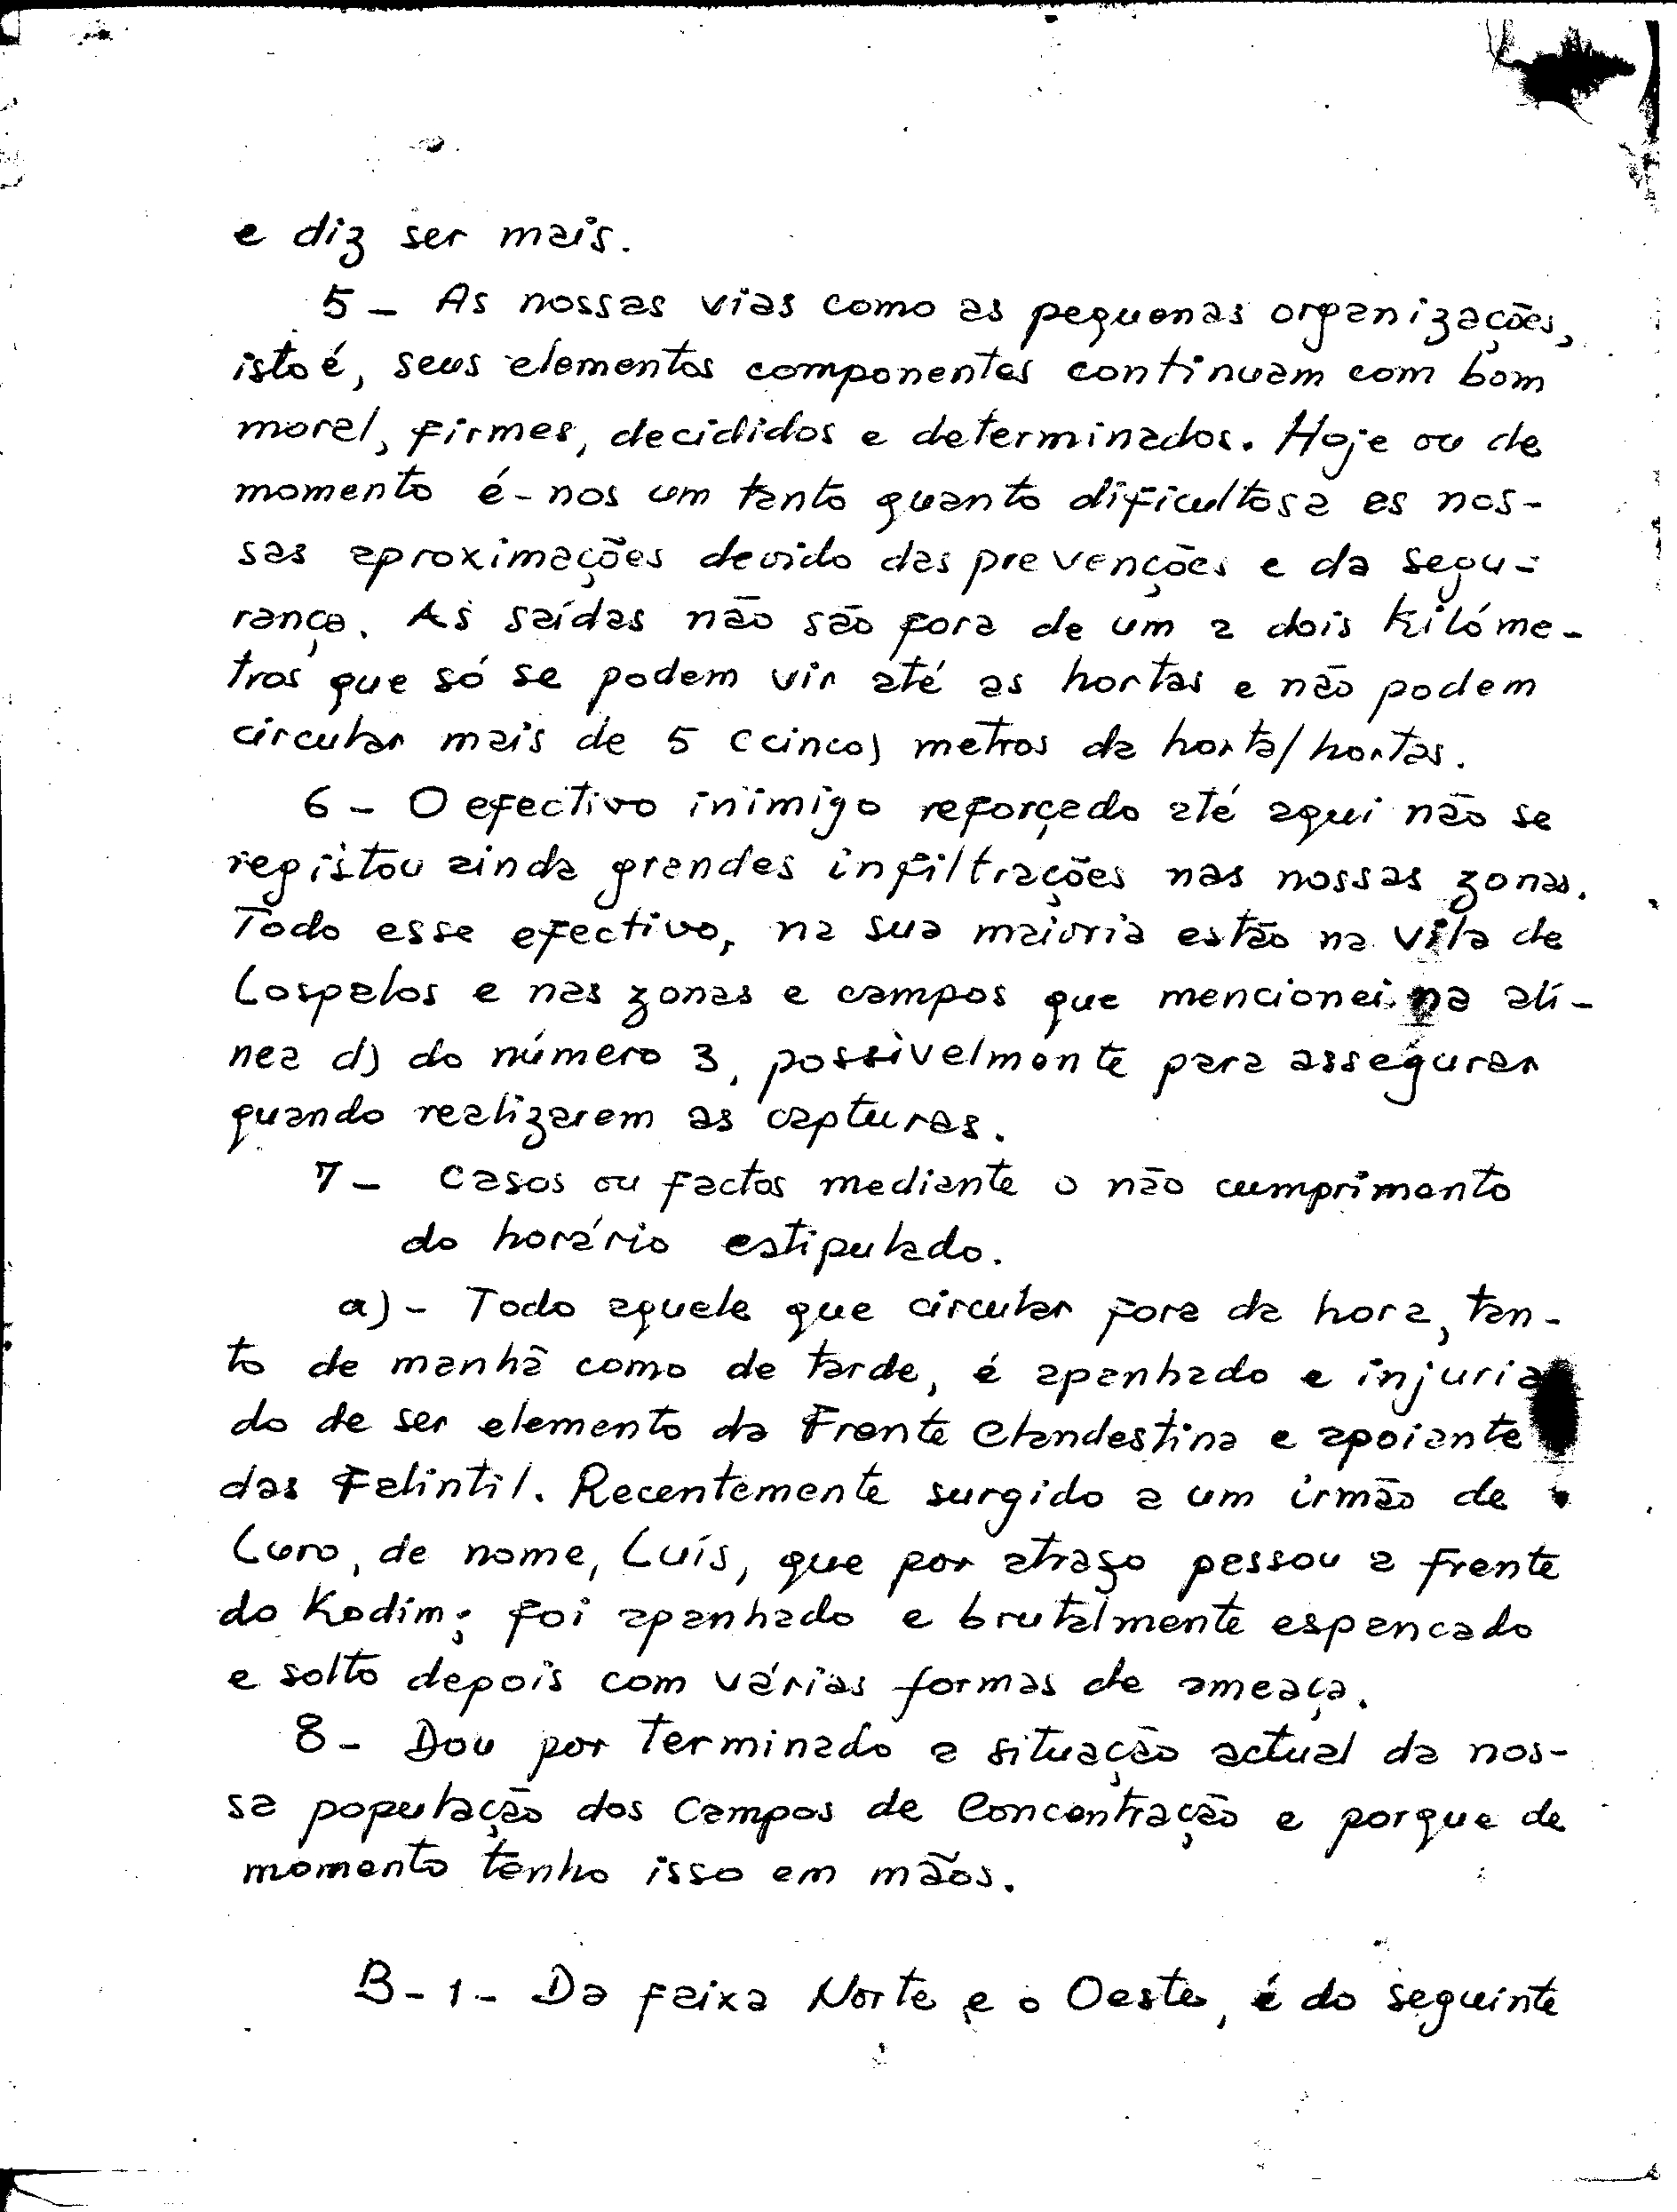 e diz ser mais.
5 - As nossas vias como as pequenas organizações,
isto é, seus elementos componentes continuam com bom
moral, firmes, decididos e determinados. Hoje ou de
momento é-nos um tanto quanto dificultosa as nos-
sas aproximações devido das prevenções e da segu-
rança. As saídas não são fora de um a dois kilóme-
tros que só se podem vir até as hortas e não podem
circular mais de 5 (cinco) metros da horta/hortas.
6 - O efectivo inimigo reforçado até aqui não se
registou ainda grandes infiltrações nas nossas zonas.
Todo esse efectivo, na sua maioria estão na vila de
Lospalos e nas zonas e campos que mencionei na alí-
nea d) do número 3, possivelmente para assegurar
quando realizarem as capturas.
7 - Casos ou factos mediante o não cumprimento
do horário estipulado.
a) - Todo aquele que circular fora da hora, tan-
to de manhã como de tarde, é apanhado e injuria
do de ser elemento da Frente Clandestina e apoiante
das Falintil. Recentemente surgido a um irmão de
Luro, de nome, Luís, que por atrazo passou a frente
do Kodim; foi apanhado e brutalmente espancado
e solto depois com várias formas de ameaça.
8 - Dou por terminado a situação actual da nos-
sa população dos Campos de Concentração e porque de
momento tenho isso em mãos.
B-1- Da faixa Norte e o Oeste, é do seguinte